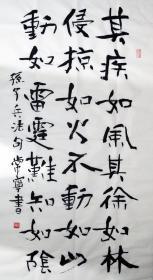 其疾如風其徐如林
侵掠如火不動如山
動如雷霆難知如陰
孫子兵法句常寧書